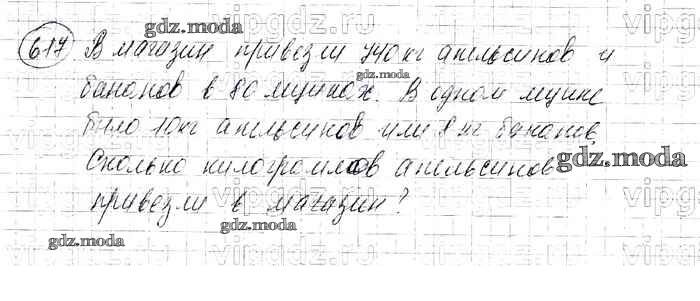 617 В магазин привезли 740 кг апельсинов и
бананов в 80 ящиках. В одном ящике
было 10 кг апельсинов или 8 кг бананов.
Сколько килограммов апельсинов
привезли в магазин?
gdz.moda
gdz.moda
gdz.moda
gdz.moda
gdz.moda
gdz.moda
vipgdz.ru